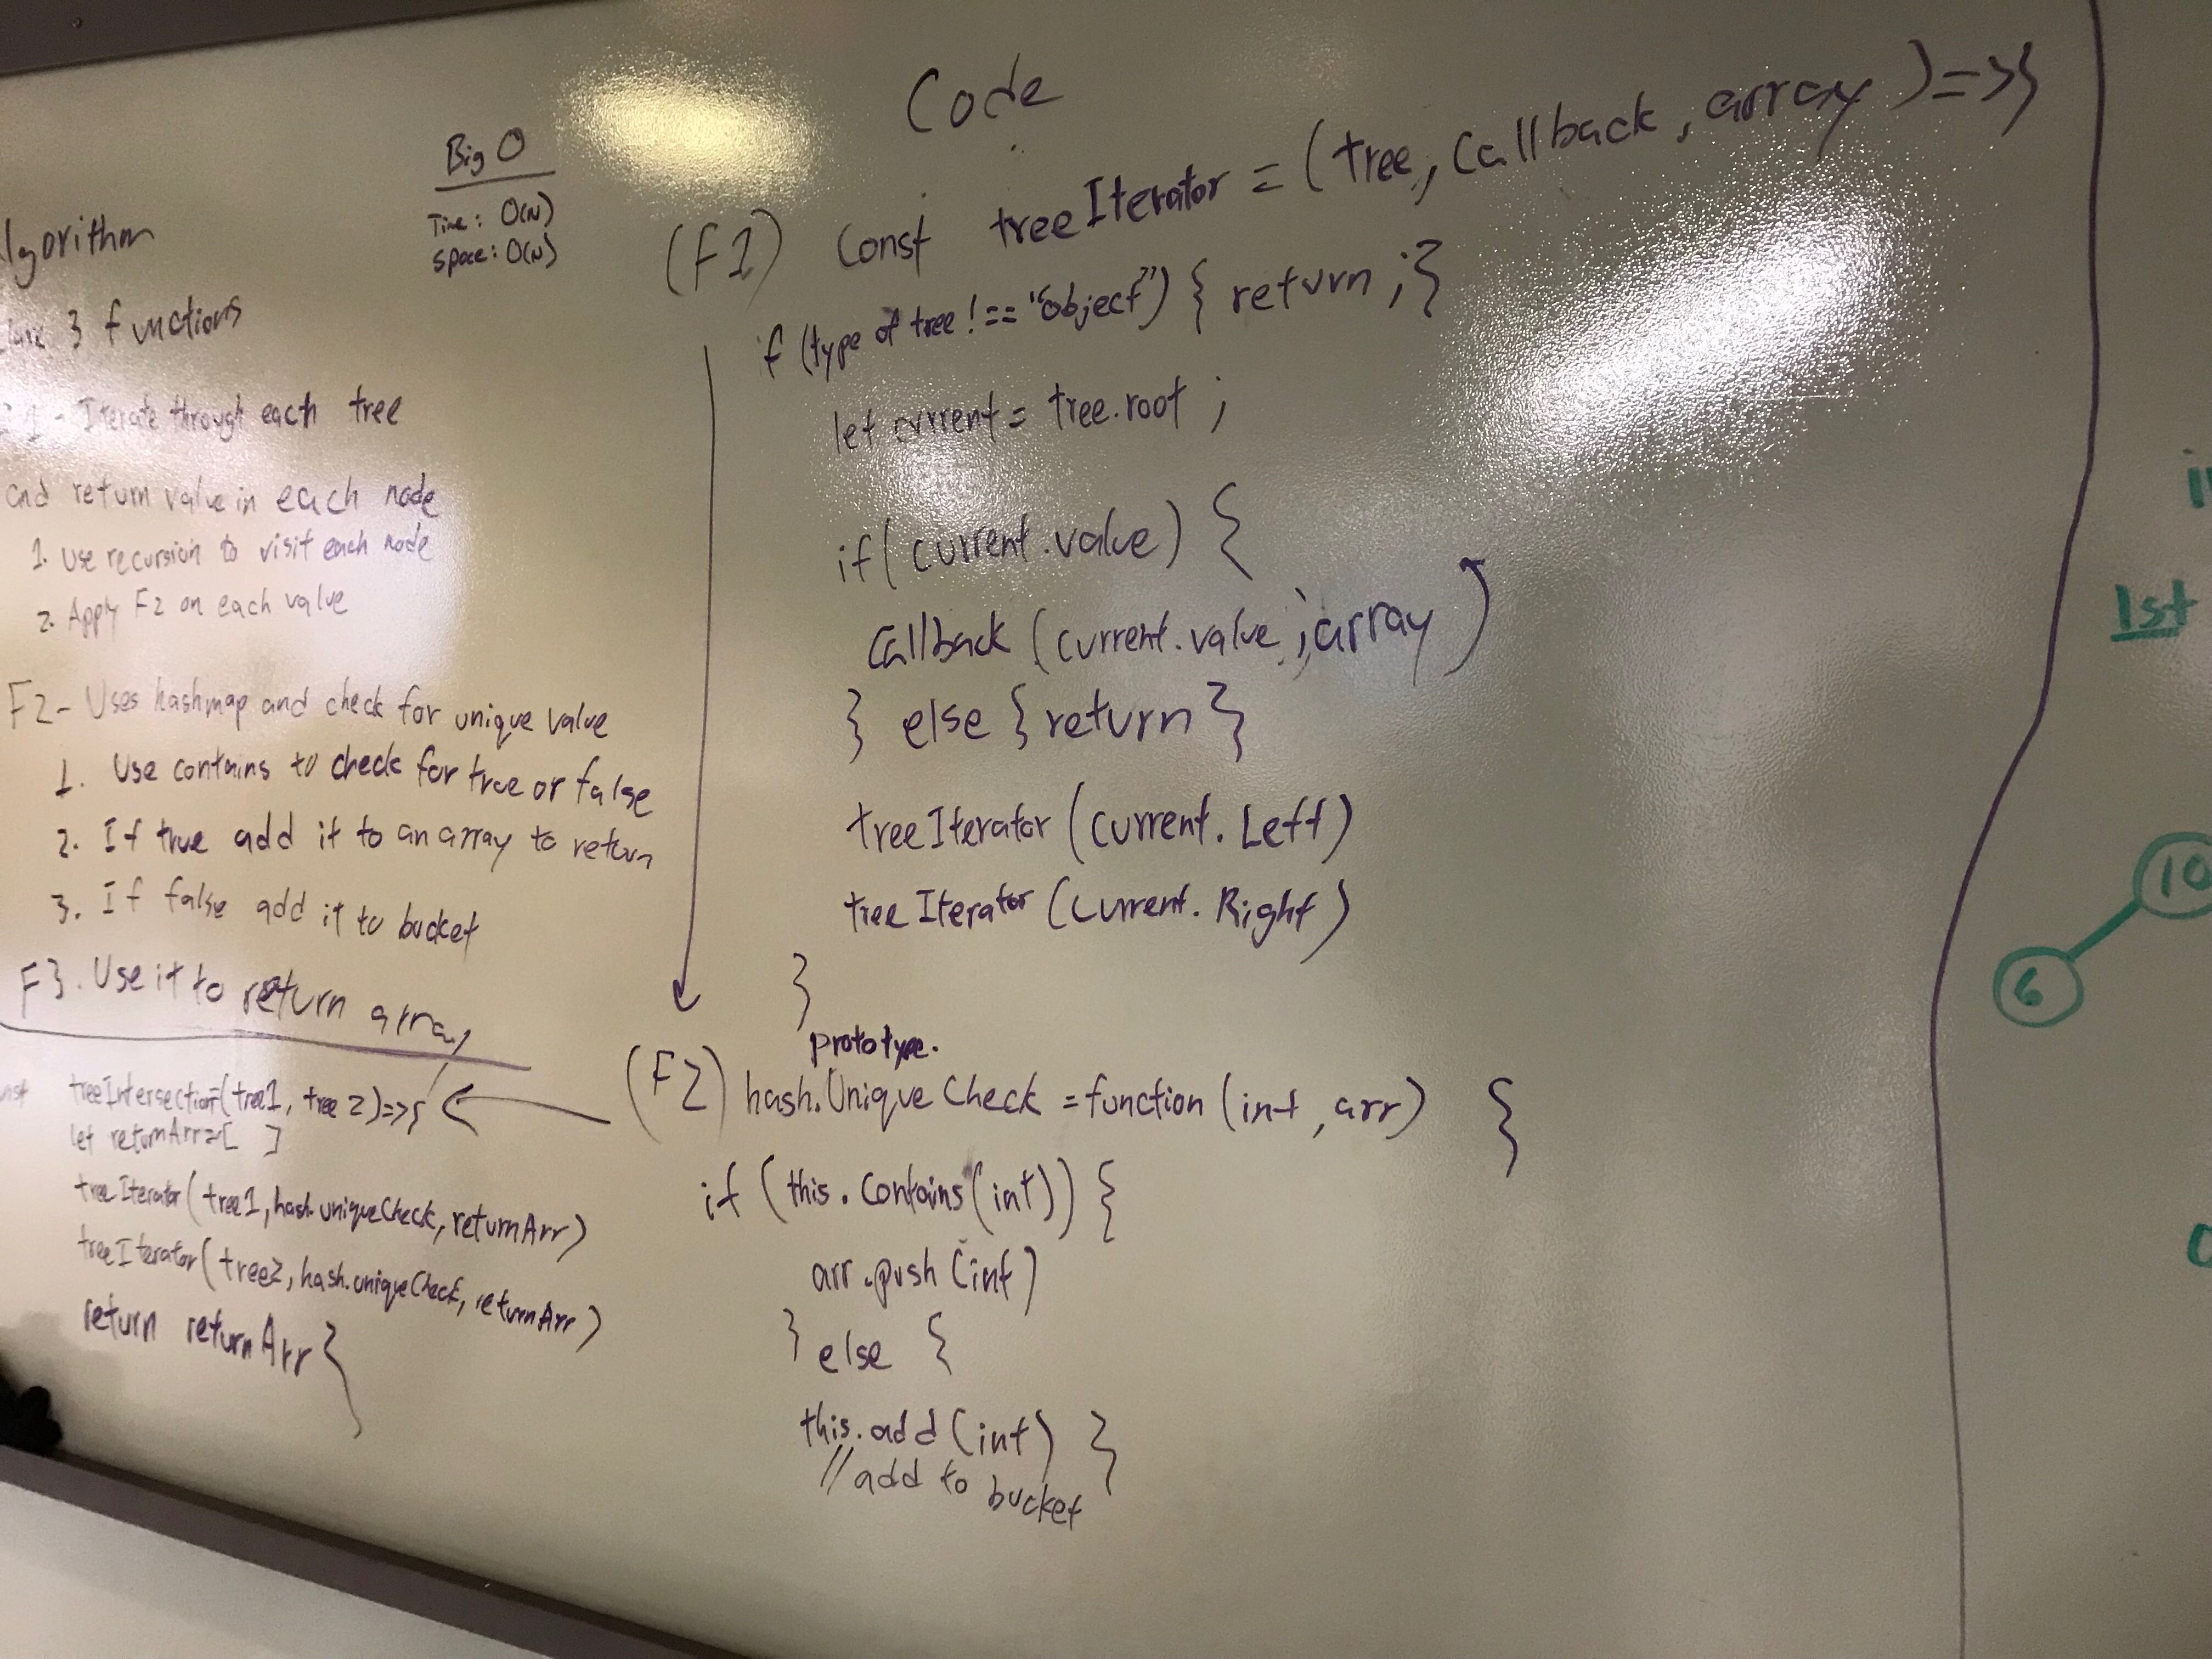 lgorithm
3 functions
1- Iterate through each tree
and return value in each node
1. Use recursion to visit each node
2. Apply F2 on each value
F2- Uses hashmap and check for unique value
1. Use contains to check for true or false
2. If true add it to an array to return
3. If false add it to bucket
F3. Use it to return array
treeIntersection=(tree1, tree2)=>{
let returnArr=[ ]
treeIterator(tree1, hash.uniqueCheck, returnArr)
treeIterator(tree2, hash.uniqueCheck, returnArr)
return returnArr }
Big O
Time: O(N)
Space: O(N)
Code
(F1) Const treeIterator = (tree, Callback, array)=>{
if (type of tree !== "object") { return ; }
let current = tree.root ;
if( current.value) {
Callback (current.value , array)
} else { return }
treeIterator (current. Left)
treeIterator (current. Right)
}
prototype.
(F2) hash.Unique Check = function (int , arr) {
if (this. Contains (int)) {
arr.push (int)
} else {
this.add (int) }
// add to bucket
1st
10
6